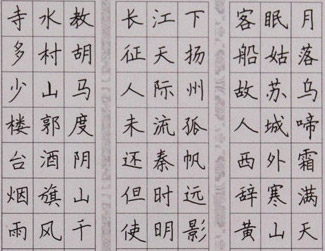 月落乌啼霜满天
眠姑苏城外寒山
客船故人西辞黄
下扬州孤帆远影
江天际流秦时明
长征人未还但使
教胡马度阴山千
水村山郭酒旗风
寺多少楼台烟雨